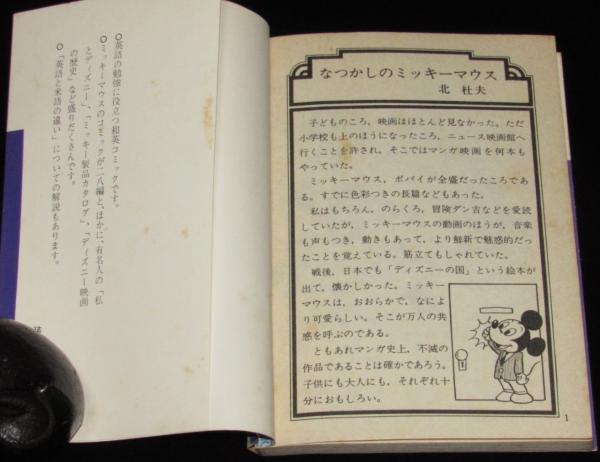 ○英語の勉強に役立つ和英コミックです。
○ミッキーマウスのコミックが二八編と、ほかに、有名人の「私
とディズニー」、「ミッキー製品カタログ」、「ディズニー映画
の歴史」など盛りだくさんです。
○「英語と米語の違い」についての解説もあります。
なつかしのミッキーマウス
北 杜夫
子どものころ、映画はほとんど見なかった。ただ
小学校も上のほうになったころ、ニュース映画館へ
行くことを許され、そこではマンガ映画を何本も
やっていた。
ミッキーマウス、ポパイが全盛だったころであ
る。すでに色彩つきの長篇などもあった。
私はもちろん、のらくろ、冒険ダン吉などを愛読
していたが、ミッキーマウスの動画のほうが、音楽
も声もつき、動きもあって、より鮮新で魅惑的だっ
たことを覚えている。筋立てもしゃれていた。
戦後、日本でも「ディズニーの国」という絵本が
出て、懐かしかった。ミッキー
マウスは、おおらかで、なによ
り可愛らしい。そこが万人の共
感を呼ぶのである。
ともあれマンガ史上、不滅の
作品であることは確かであろう。
子供にも大人にも、それぞれ十
分におもしろい。
1